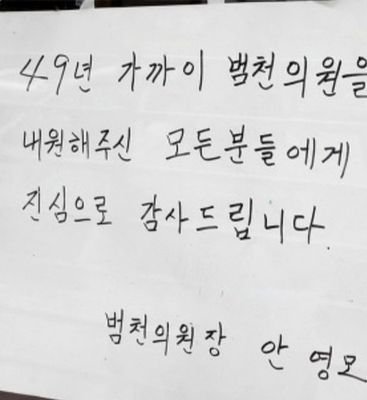 49년 가까이 범천의원을
내원해주신 모든분들에게
진심으로 감사드립니다.
범천의원장 안영모